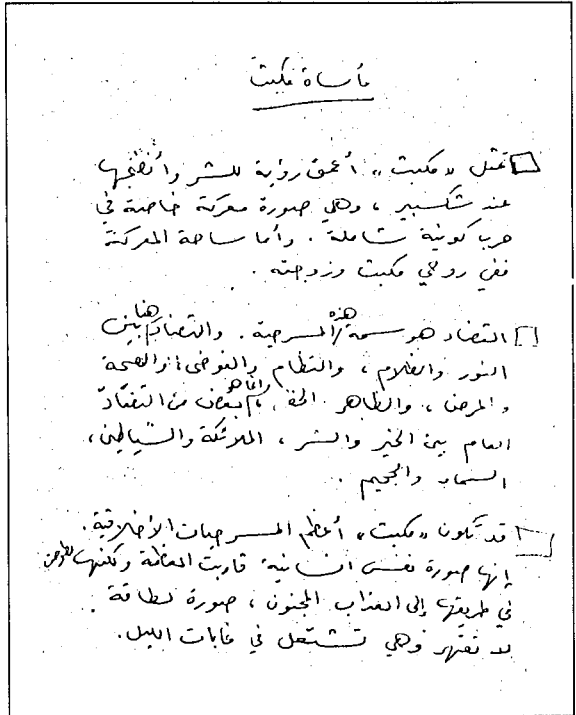 مأساة مكبث
تمثل «مكبث» أعمق رؤية للشر وأنضجها
عند شكسبير ، وهي صورة معركة خاصة في
حرب كونية شاملة . وأما ساحة المعركة
ففي روحي مكبث وزوجته .
التضاد هو سمة هذه المسرحية . والتضاد هنا بين
النور والظلام ، والنظام والفوضى ، والصحة
والمرض ، والظاهر بعض من التضادّ
العام بين الخير والشر ، الملائكة والشياطين ،
السماء والجحيم .
قد تكون «مكبث» أعظم المسرحيات الأخلاقية .
إنها صورة نفس انسانية قاربت العظمة ولكنها
في طريقها إلى العذاب المجنون ، صورة لطاقة
لا تقهر وهي تشتعل في غابات الليل .